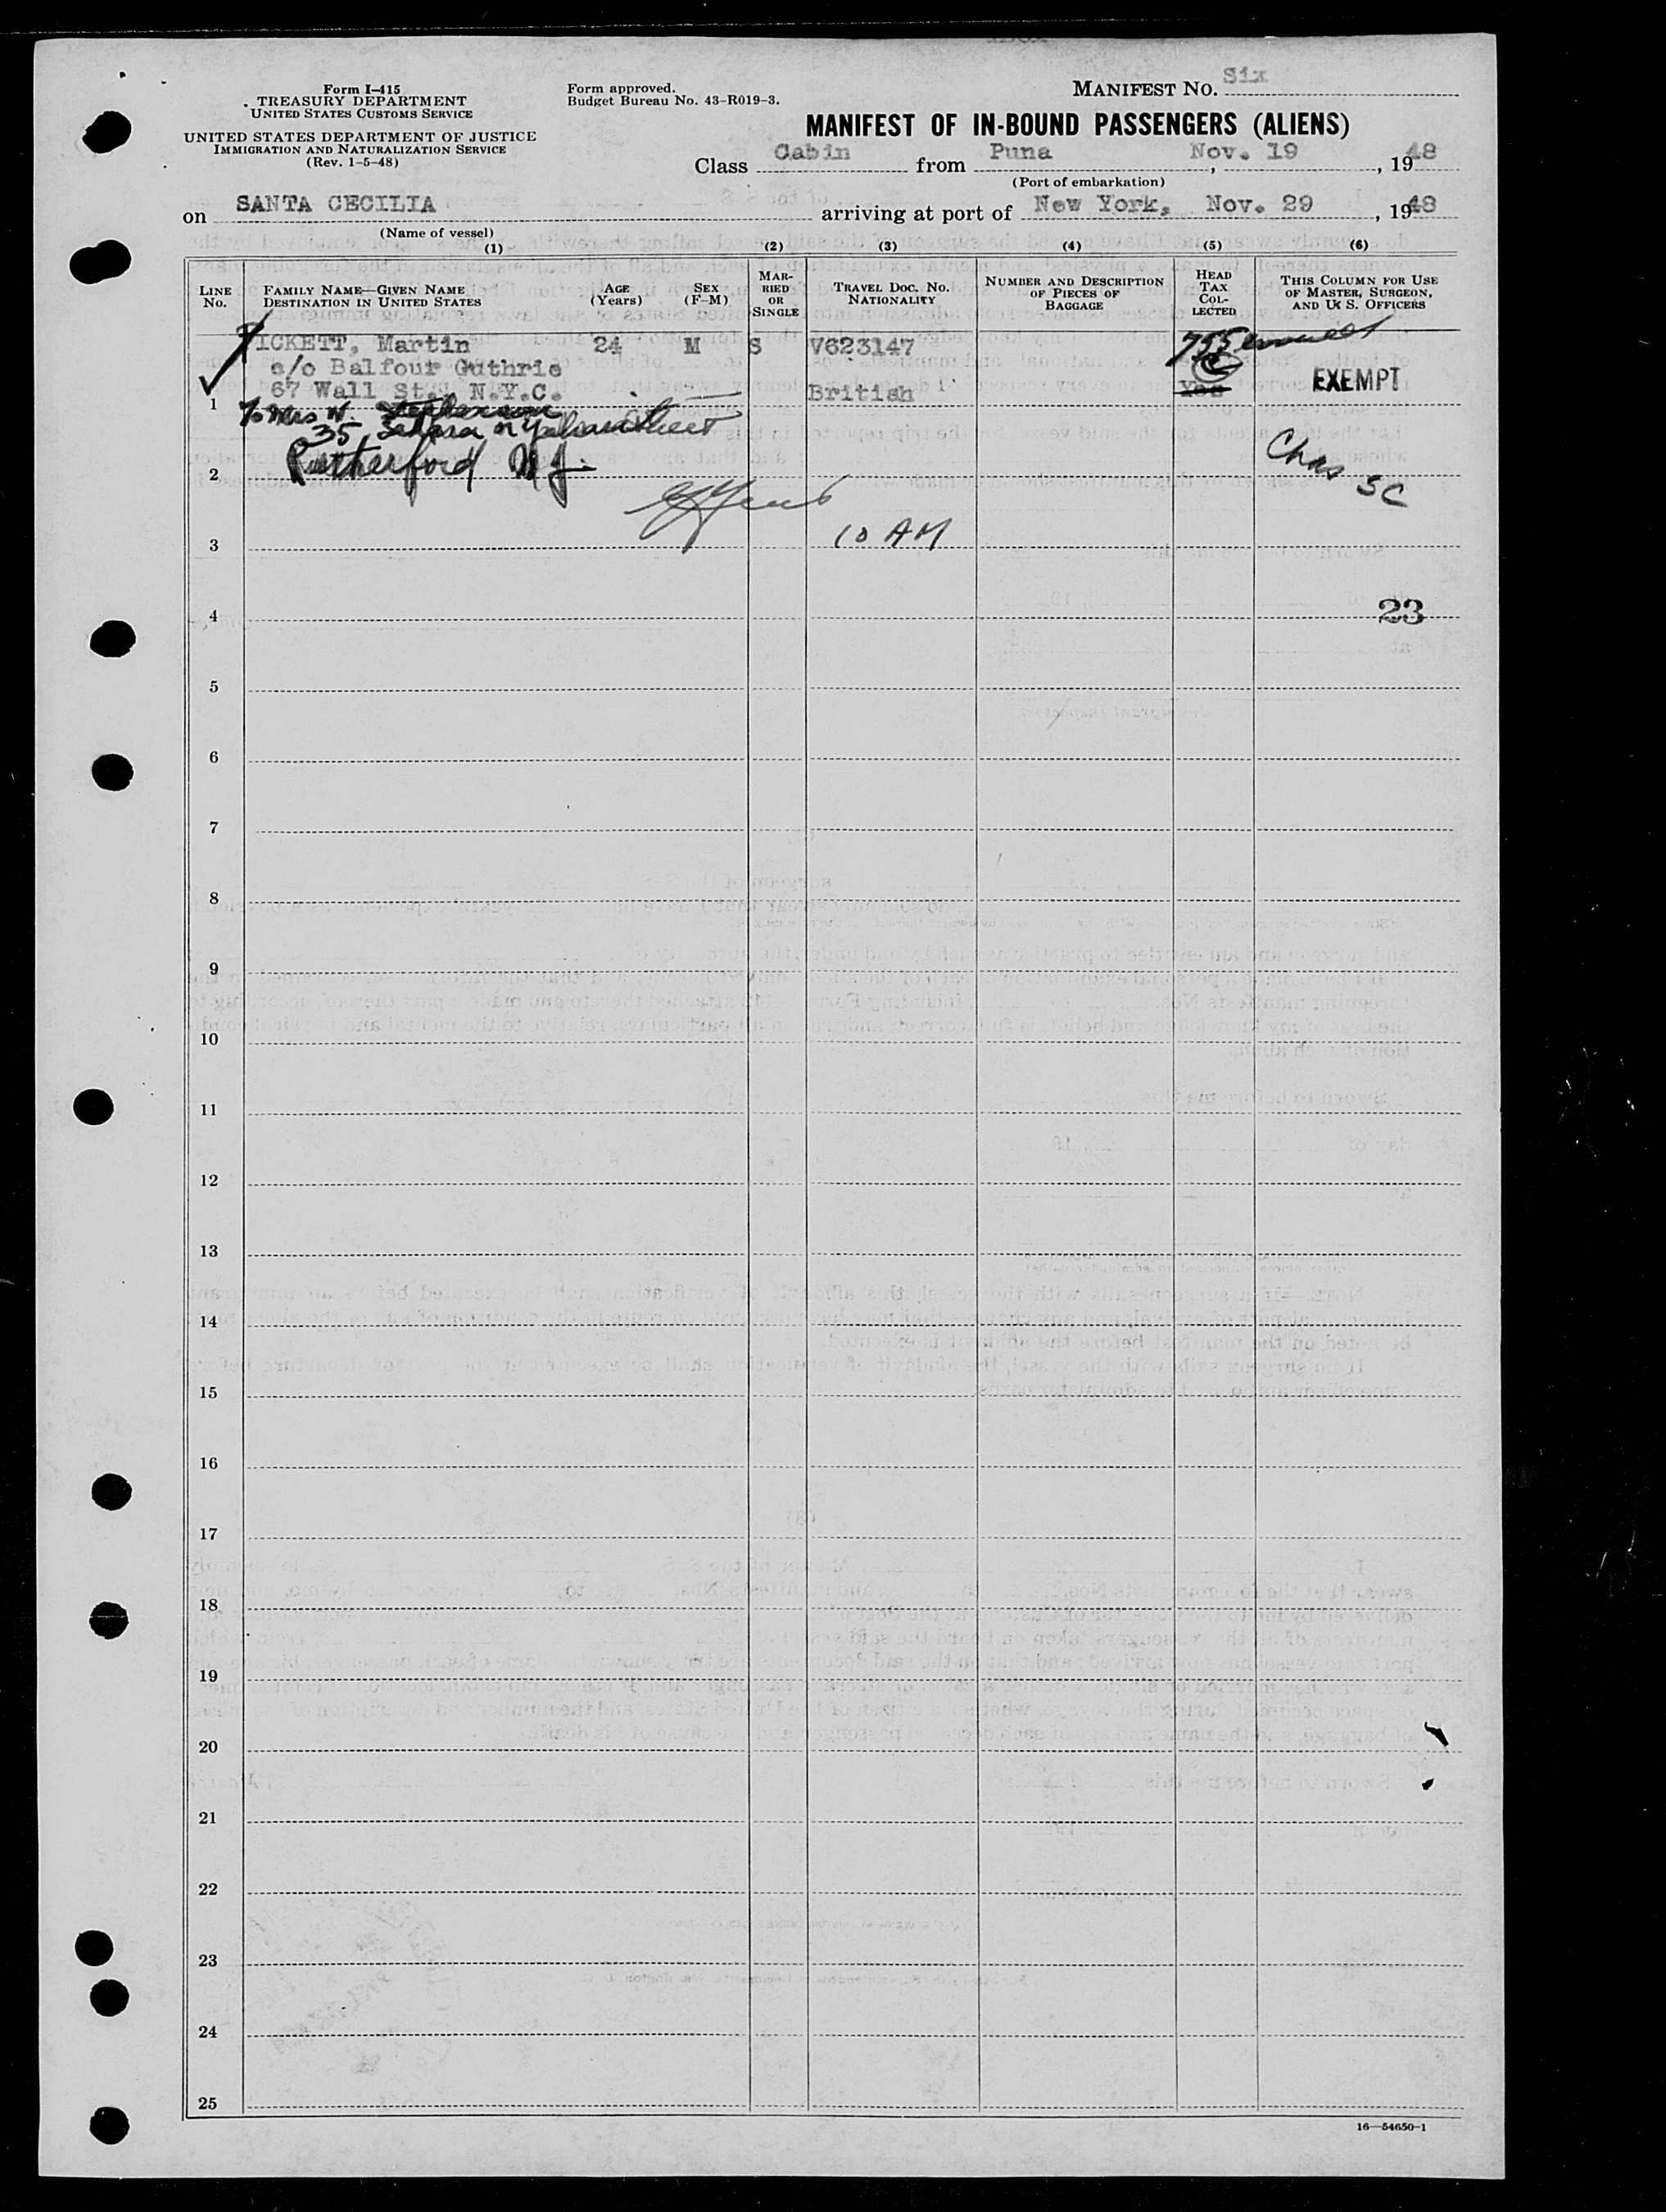 Form I-415
TREASURY DEPARTMENT
UNITED STATES CUSTOMS SERVICE
UNITED STATES DEPARTMENT OF JUSTICE
IMMIGRATION AND NATURALIZATION SERVICE
(Rev. 1-5-48)
Form approved.
Budget Bureau No. 43-R019-3.
MANIFEST NO. Six
MANIFEST OF IN-BOUND PASSENGERS (ALIENS)
Class Cabin from Puna, Nov. 19, 1948
(Port of embarkation)
on SANTA CECILIA arriving at port of New York, Nov. 29, 1948
(Name of vessel)
(1) (2) (3) (4) (5) (6)
LINE NO.
FAMILY NAME—GIVEN NAME
DESTINATION IN UNITED STATES
AGE (Years)
SEX (F-M)
MARRIED OR SINGLE
TRAVEL DOC. NO.
NATIONALITY
NUMBER AND DESCRIPTION OF PIECES OF BAGGAGE
HEAD TAX COLLECTED
THIS COLUMN FOR USE OF MASTER, SURGEON, AND U. S. OFFICERS
ICKETT, Martin 24 M S V623147
c/o Balfour Guthrie
67 Wall St., N.Y.C. British Yes EXEMPT
1
c/o Mrs W.
35
Rutherford N.J. Chas SC
2
10 AM
3
4 23
5
6
7
8
9
10
11
12
13
14
15
16
17
18
19
20
21
22
23
24
25
16—54650-1